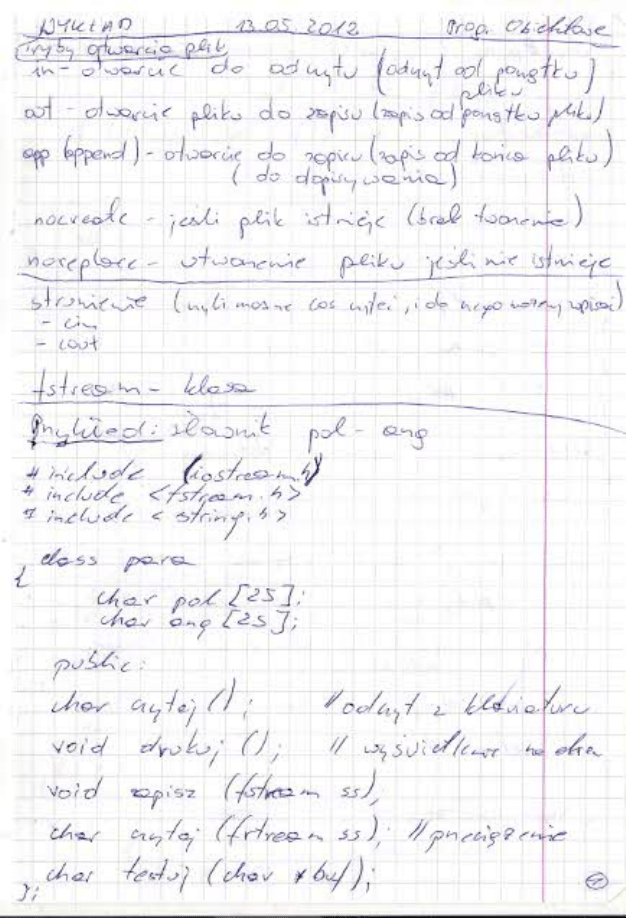 WYKŁAD 13.05.2012 Prog. Obiektowe
tryby otwarcia plik
in - otwarcie do odczytu (odczyt od początku
pliku)
out - otwarcie pliku do zapisu (zapis od początku pliku)
app (append) - otwarcie do zapisu (zapis od końca pliku)
(do dopisywania)
nocreate - jeśli plik istnieje (brak tworzenia)
noreplace - utworzenie pliku jeśli nie istnieje
strumienie (czyli można coś czytać, i do niego możemy zapisać)
- cin
- cout
fstream - klasa
Przykład: słownik pol - ang
# include (iostream.h)
# include <fstream.h>
# include < string.h>
class para
{
char pol [25];
char ang [25];
public:
char czytaj (); // odczyt z klawiatury
void drukuj (); // wyświetlenie na ekran
void zapisz (fstream ss);
char czytaj (fstream ss); // przeciążenie
char testuj (char *buf);
};
1